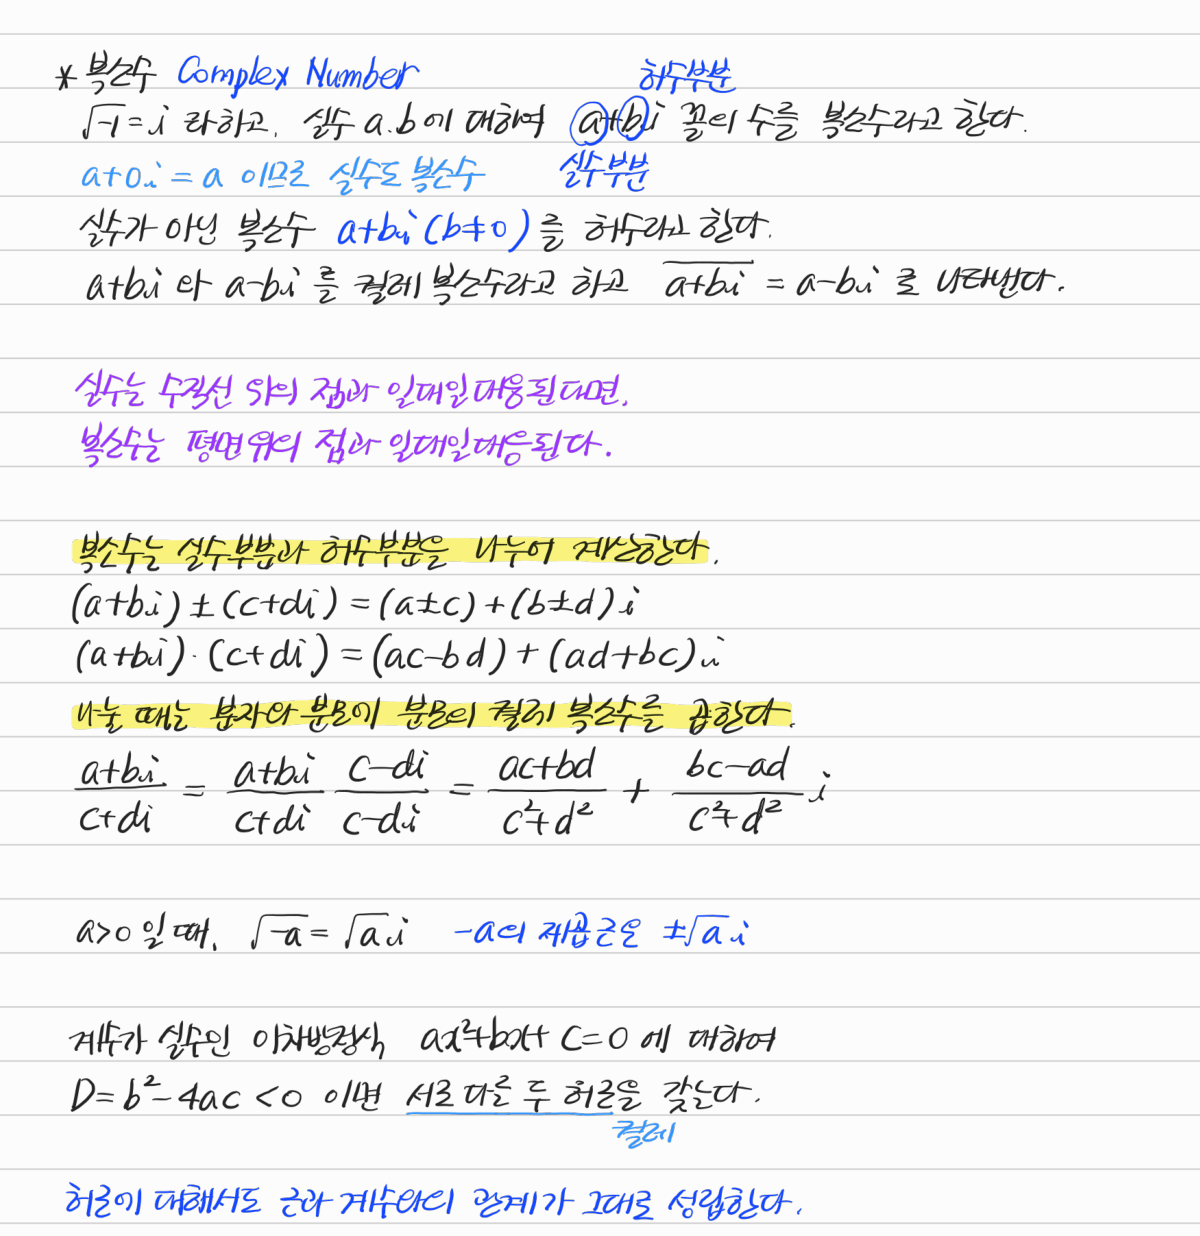 * 복소수 Complex Number
허수부분
√-1 = i 라하고, 실수 a.b에 대하여 a+bi 꼴의 수를 복소수라고 한다.
a+0i = a 이므로 실수도 복소수
실수부분
실수가 아닌 복소수 a+bi (b≠0) 를 허수라고 한다.
a+bi 와 a-bi 를 켤레 복소수라고 하고 \overline{a+bi} = a-bi 로 나타낸다.
실수는 수직선 위의 점과 일대일 대응된다면,
복소수는 평면위의 점과 일대일대응된다.
복소수는 실수부분과 허수부분을 나누어 계산한다.
(a+bi) ± (c+di) = (a±c) + (b±d) i
(a+bi)·(c+di) = (ac-bd) + (ad+bc) i
나눌 때는 분자와 분모에 분모의 켤레 복소수를 곱한다.
\frac{a+bi}{c+di} = \frac{a+bi}{c+di} \frac{c-di}{c-di} = \frac{ac+bd}{c²+d²} + \frac{bc-ad}{c²+d²} i
a>0 일 때, √-a = √a i -a의 제곱근은 ±√a i
계수가 실수인 이차방정식 ax²+bx+c=0 에 대하여
D = b²-4ac < 0 이면 서로 다른 두 허근을 갖는다.
켤레
허근에 대해서도 근과 계수와의 관계가 그대로 성립한다.